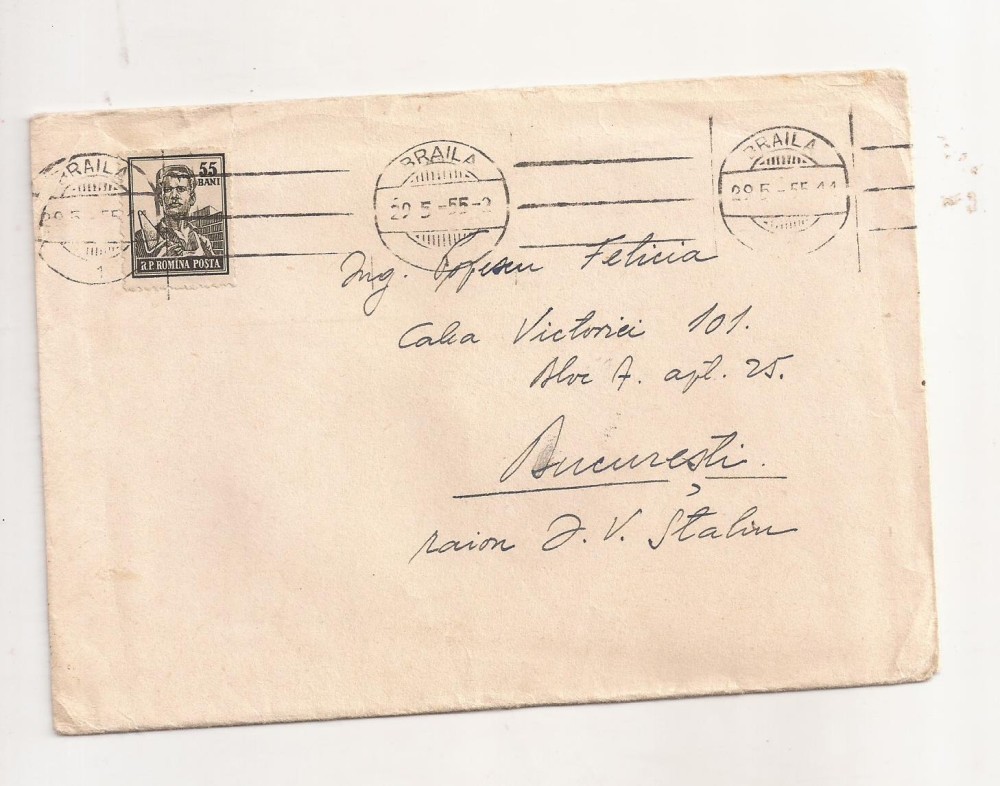 BRAILA
29 5 -55
1
55
BANI
R.P. ROMINA POSTA
BRAILA
29 5 -55-2
BRAILA
29 5 -55 11
Ing. Popescu Felicia
Calea Victoriei 101.
Bloc A. apt. 25.
București.
raion I. V. Stalin